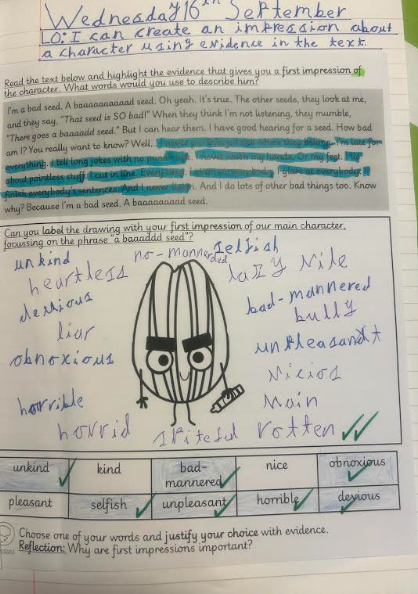 Wednesday 16th September
LO: I can create an impression about
a character using evidence in the text.
Read the text below and highlight the evidence that gives you a first impression of
the character. What words would you use to describe him?
I'm a bad seed. A baaaaaaaaaad seed. Oh yeah. It's true. The other seeds, they look at me,
and they say, "That seed is SO bad!" When they think I'm not listening, they mumble,
"There goes a baaaadd seed." But I can hear them. I have good hearing for a seed. How bad
am I? You really want to know? Well. I never put things back where they belong. I'm late for
everything. I tell long jokes with no
with my hands. Or my feet.
about pointless stuff. I cut in line. Every
I glare at everybody. I
finish everybody's sentences. And I never And I do lots of other bad things too. Know
why? Because I'm a bad seed. A baaaaaaaad seed.
Can you label the drawing with your first impression of our main character,
focussing on the phrase "a baaaddd seed"?
unkind no-mannerded selfish
heartless lazy Vile
devious bad-mannered
liar bully
obnoxious unpleasant
Vicios
horrible Main
horrid spiteful rotten
unkind kind bad-mannered nice obnoxious
pleasant selfish unpleasant horrible devious
Choose one of your words and justify your choice with evidence.
Reflection: Why are first impressions important?